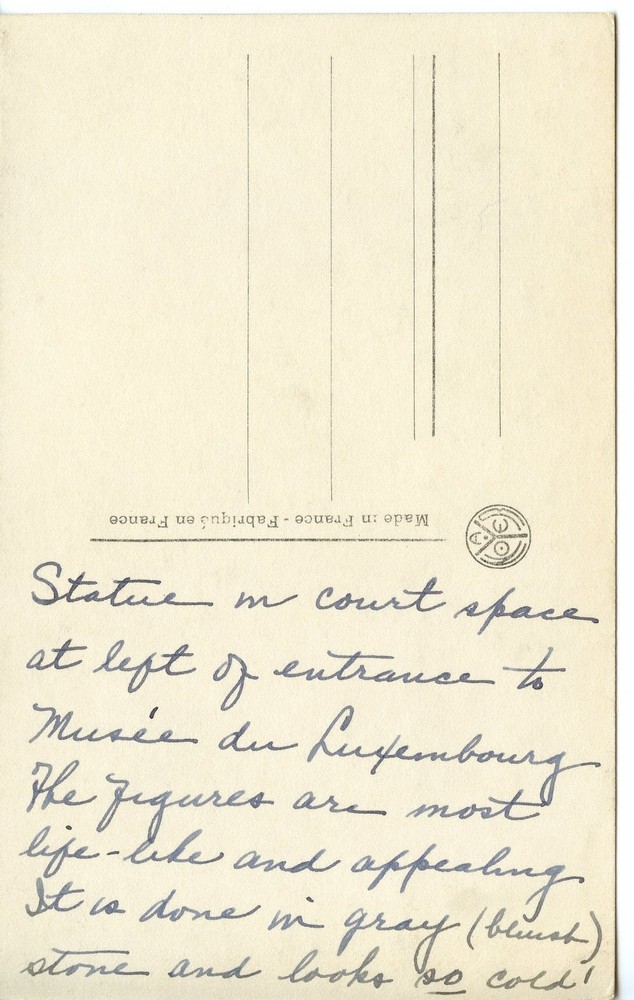 Made in France - Fabriqué en France
Statue in court space
at left of entrance to
Musée du Luxembourg
The figures are most
life-like and appealing
It is done in gray (bluish)
stone and looks so cold!